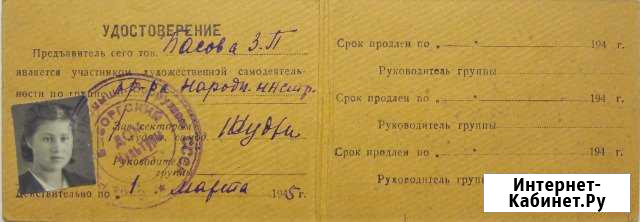 УДОСТОВЕРЕНИЕ
Предъявитель сего тов. Басова З.П
является участником художественной самодеятель-
ности по группе орк-ра народн. инстр.
Зав. сектором
худож. самод.
Руководитель
группы
Действительно по 1 Марта 1945 г.
ВЫБОРГСКИЙ
ДОМ
КУЛЬТУРЫ
Срок продлен по 194 г
Руководитель группы
Срок продлен по 194 г
Руководитель группы
Срок продлен по 194 г
Руководитель группы
Интернет-
Кабинет.Ру